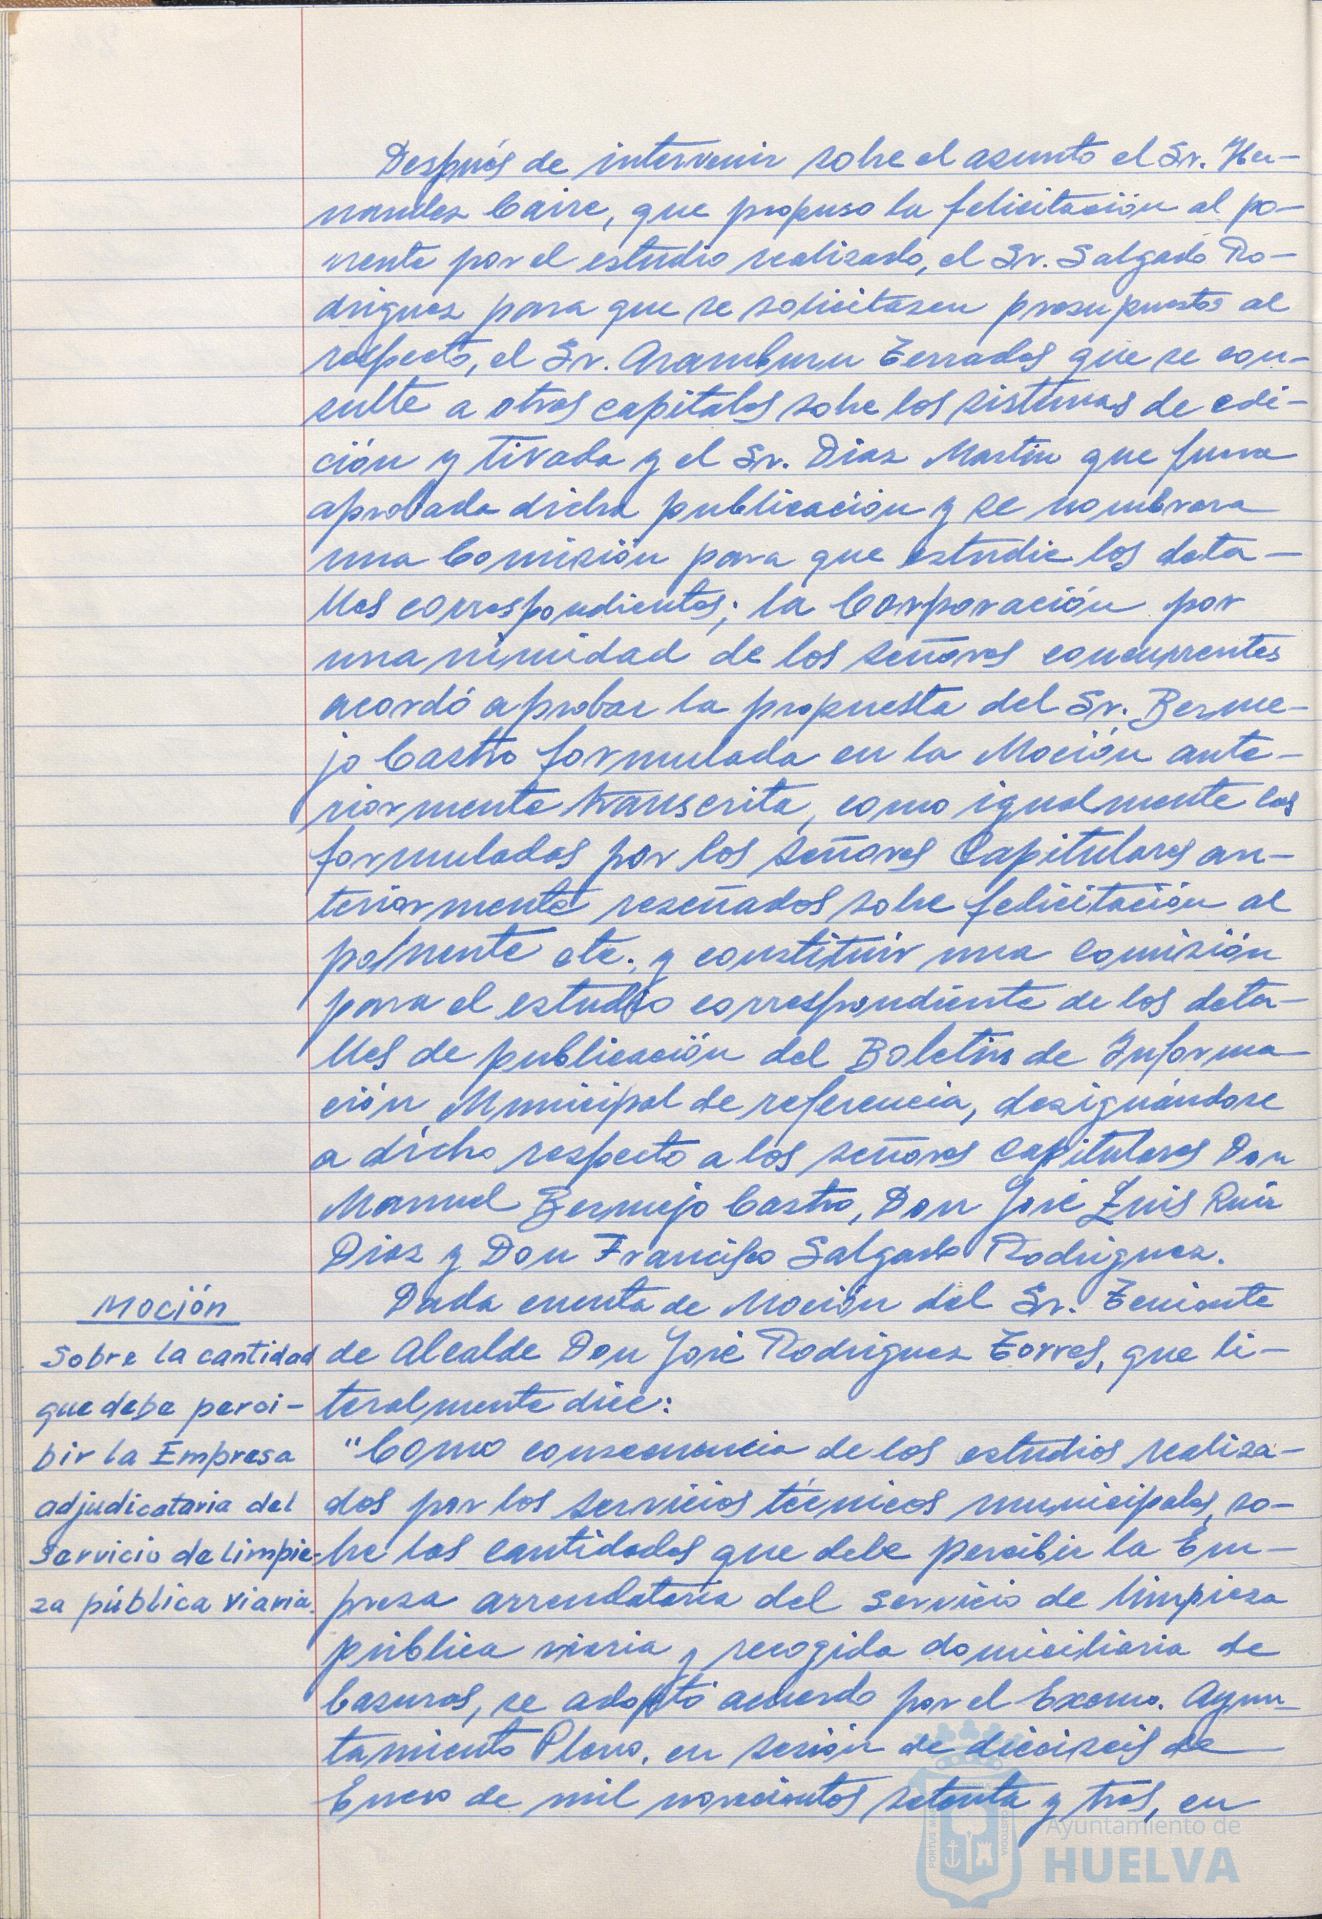 Después de intervenir sobre el asunto el Sr. Her-
nandez Caire, que propuso la felicitación al po-
nente por el estudio realizado, el Sr. Salgado Ro-
driguez para que se solicitasen presupuestos al
respecto, el Sr. Aramburu Terrados que se con-
sulte a otras capitales sobre los sistemas de edi-
ción y tirada y el Sr. Diaz Martin que fuera
aprobada dicha publicación y se nombrara
una Comisión para que estudie los deta-
lles correspondientes; la Corporación por
unanimidad de los señores concurrentes
acordó aprobar la propuesta del Sr. Berme-
jo Castro formulada en la Moción ante-
riormente transcrita, como igualmente las
formuladas por los señores Capitulares an-
teriormente reseñados sobre felicitación al
ponente etc. y constituir una comisión
para el estudio correspondiente de los deta-
lles de publicación del Boletin de Informa-
ción Municipal de referencia, designándose
a dicho respecto a los señores Capitulares Don
Manuel Bermejo Castro, Don José Luis Ruiz
Diaz y Don Francisco Salgado Rodriguez.
Moción
Sobre la cantidad
que debe perci-
bir la Empresa
adjudicataria del
Servicio de limpie-
za pública viaria.
Dada cuenta de Moción del Sr. Teniente
de Alcalde Don José Rodriguez Torres, que li-
teralmente dice:
"Como consecuencia de los estudios realiza-
dos por los servicios técnicos municipales, so-
bre las cantidades que debe percibir la Em-
presa arrendataria del servicio de limpieza
pública viaria y recogida domiciliaria de
basuras, se adoptó acuerdo por el Excmo. Ayun-
tamiento Pleno, en sesión de dieciseis de
Enero de mil novecientos setenta y tres, en
Ayuntamiento de
HUELVA